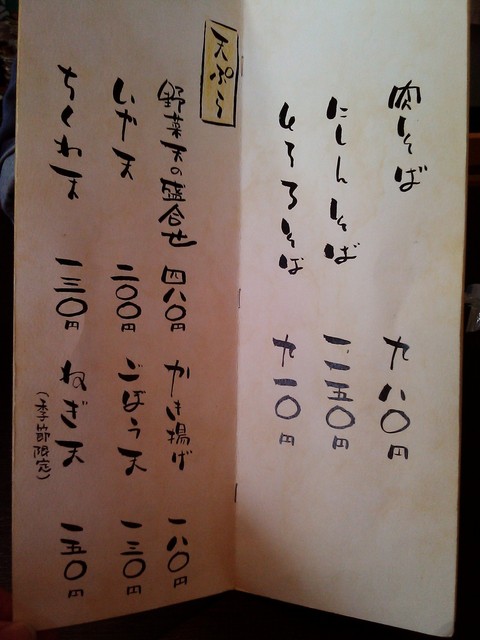 肉そば 九八〇円
にしんそば 一一五〇円
とろろそば 九一〇円
天ぷら
野菜天の盛合せ 四八〇円
かき揚げ 一八〇円
いか天 二〇〇円
ごぼう天 一三〇円
ちくわ天 一三〇円
ねぎ天 一五〇円
(季節限定)